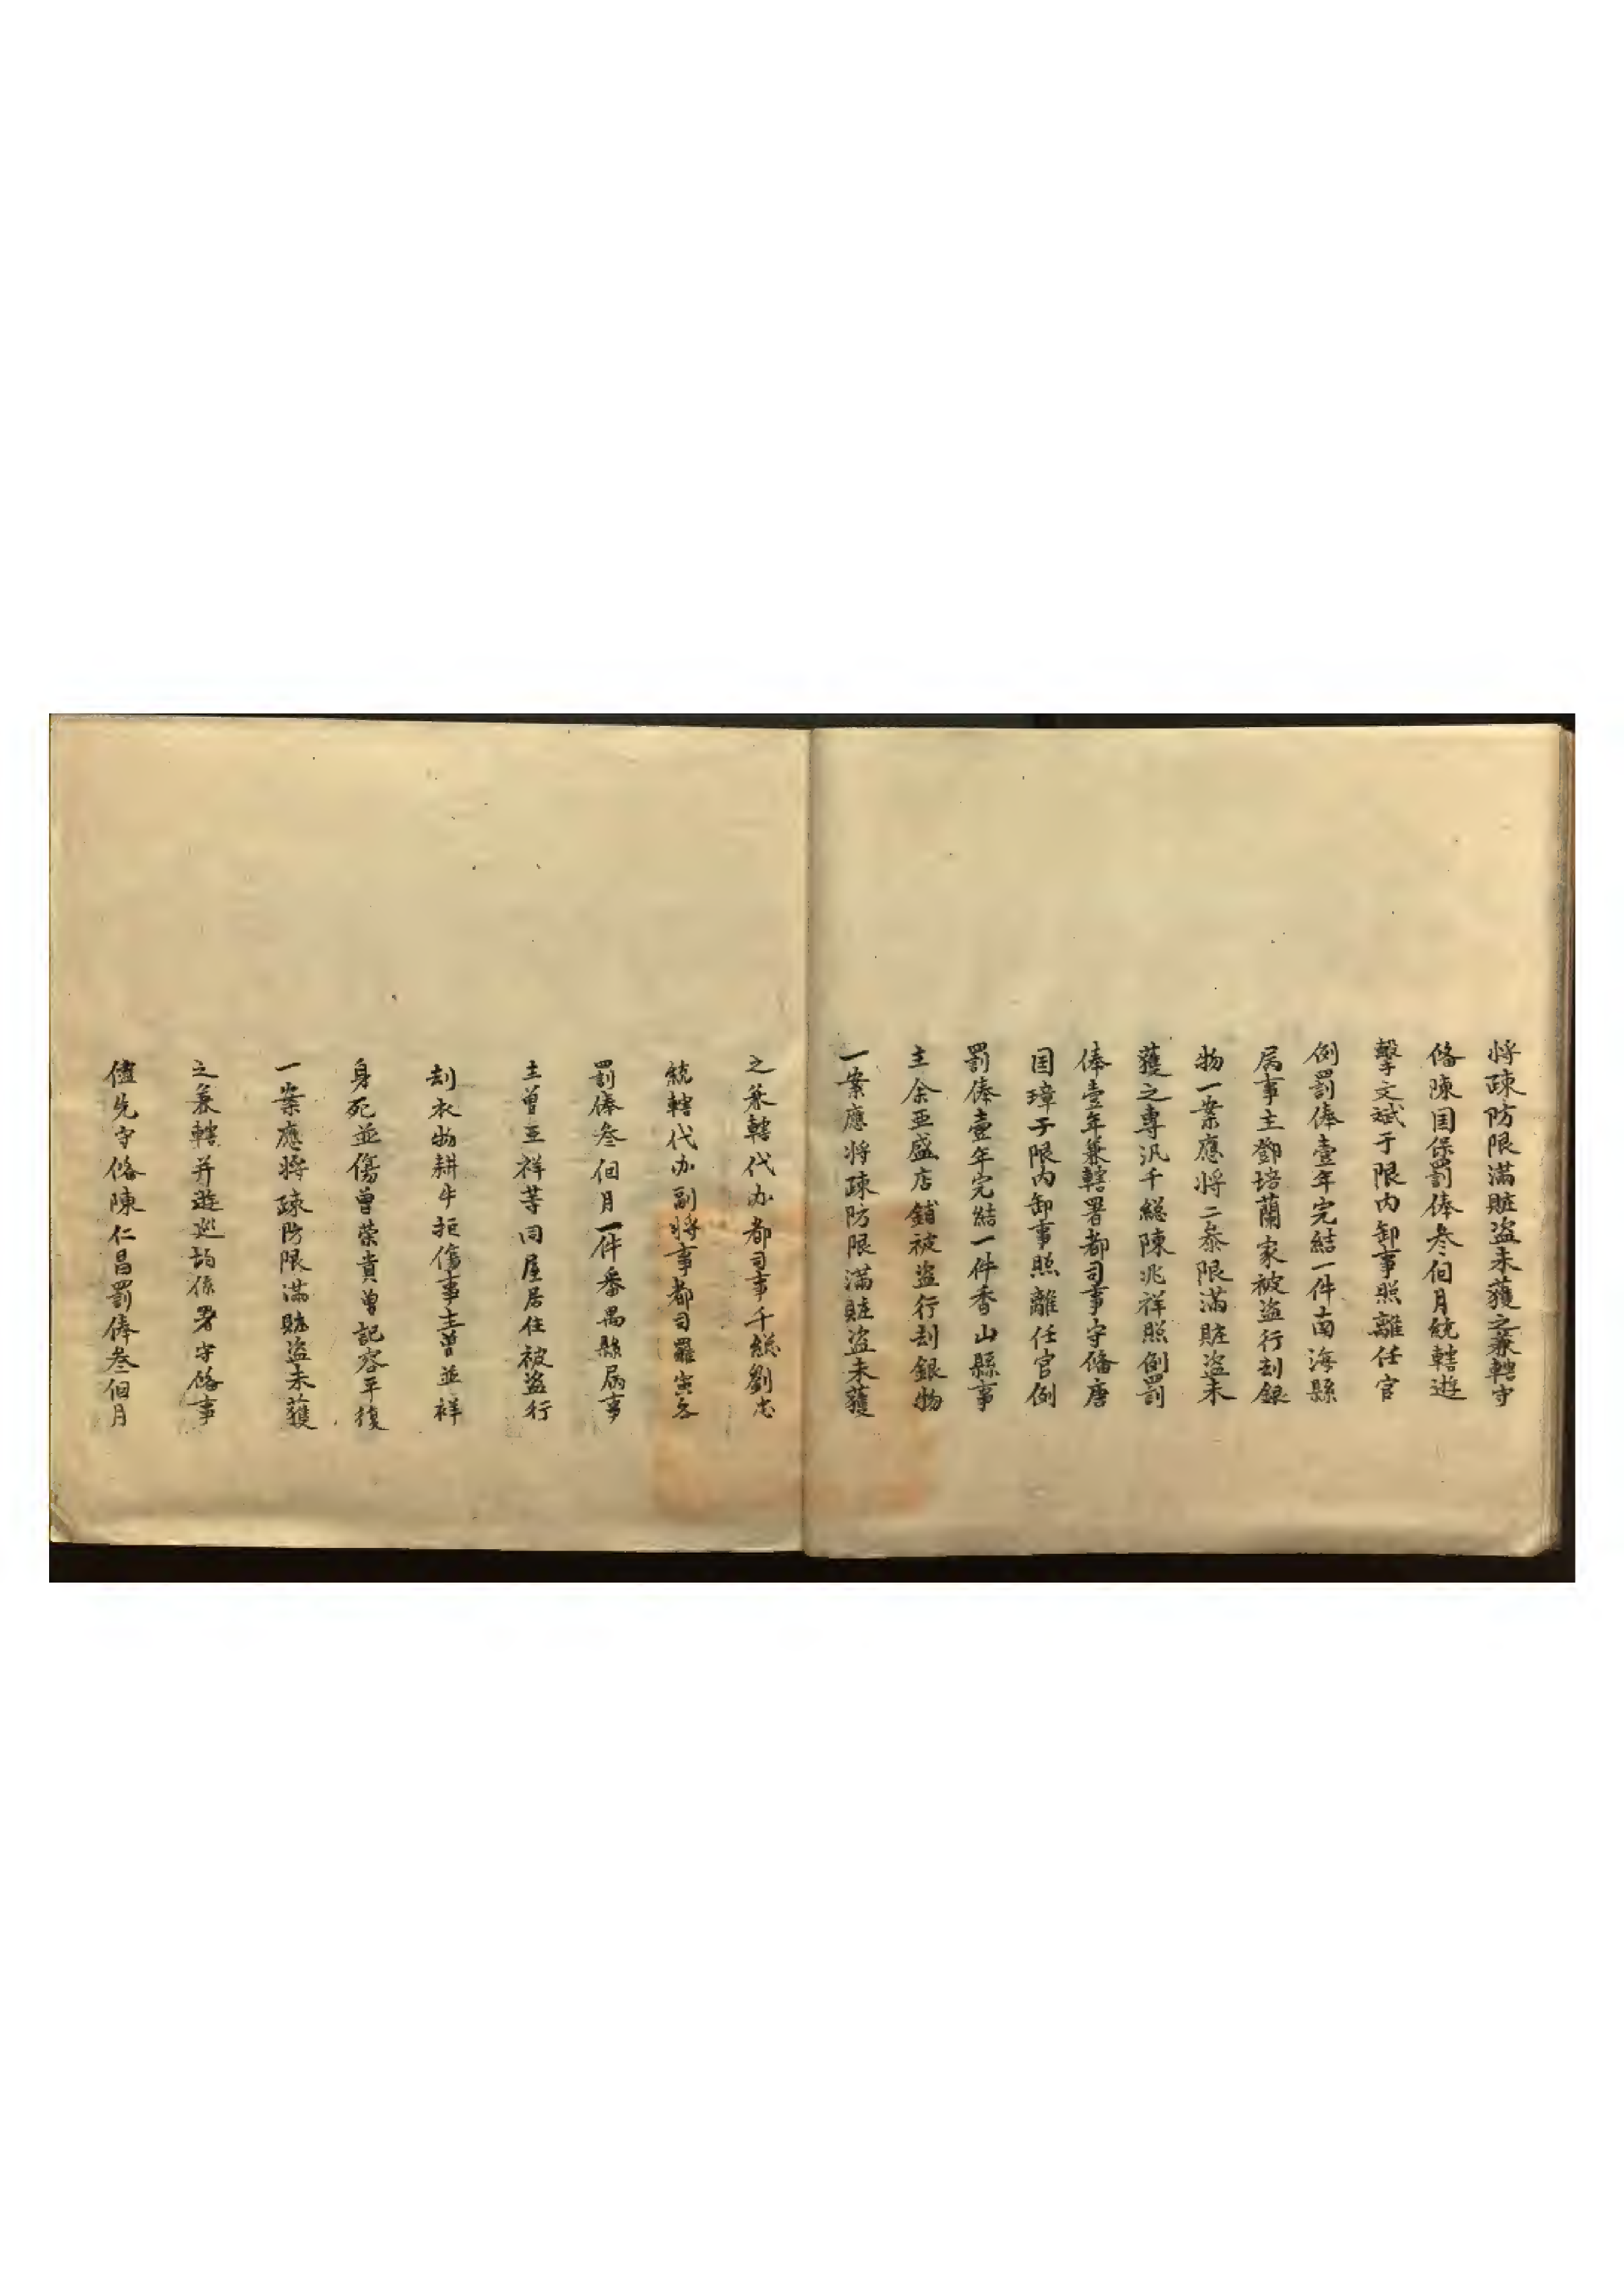 将疎防限滿賍盗未獲之兼轄守
俻陳国保罰俸叁佪月統轄遊
擊文斌于限内卸事照離任官
例罰俸壹年完結一件南海縣
属事主鄧培蘭家被盗行刦銀
物一案應将二叅限滿賍盗未
獲之專汛千総陳兆祥照例罰
俸壹年兼轄署都司事守俻唐
国璋于限内卸事照離任官例
罰俸壹年完結一件香山縣事
主余亜盛店鋪被盗行刦銀物
一案應将疎防限滿賍盗未獲
之兼轄代办都司事千総劉忠
統轄代办副将事都司羅寅各
罰俸叁佪月一件番禺縣属事
主曽亜祥等同屋居住被盗行
刦衣物耕牛拒傷事主曽並祥
身死並傷曽荣貴曽記容平復
一案應将疎防限滿賍盗未獲
之兼轄并遊廵均係署守俻事
儘先守俻陳仁昌罰俸叁佪月